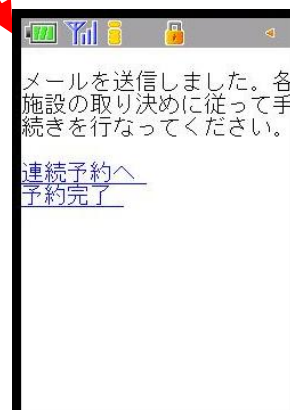 メールを送信しました。各
施設の取り決めに従って手
続きを行なってください。
連続予約へ
予約完了